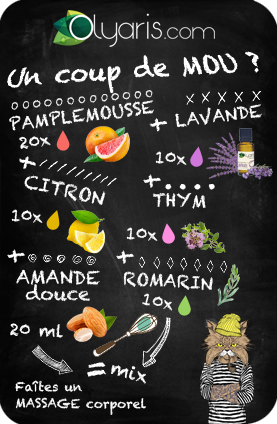 Olyaris.com
Un coup de MOU ?
PAMPLEMOUSSE
20x
+ LAVANDE
10x
+
CITRON
10x
+
THYM
10x
+
AMANDE
douce
20 ml
+
ROMARIN
10x
= mix
Faîtes un
MASSAGE corporel